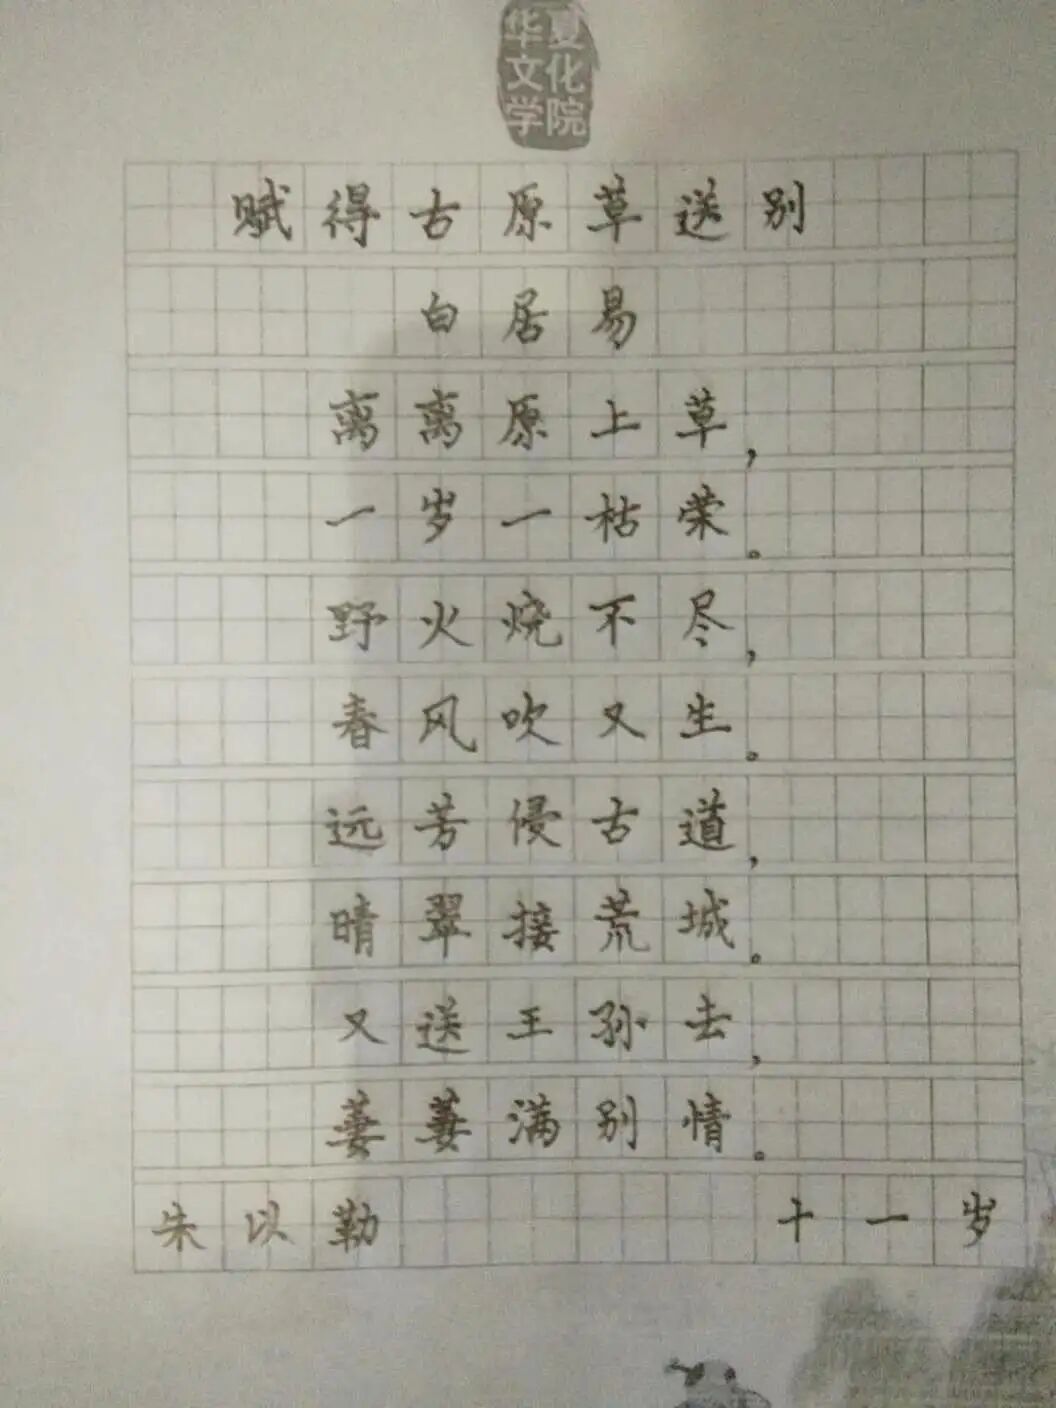 华夏
文化
学院
赋得古原草送别
白居易
离离原上草，
一岁一枯荣。
野火烧不尽，
春风吹又生。
远芳侵古道，
晴翠接荒城。
又送王孙去，
萋萋满别情。
朱以勒 十一岁